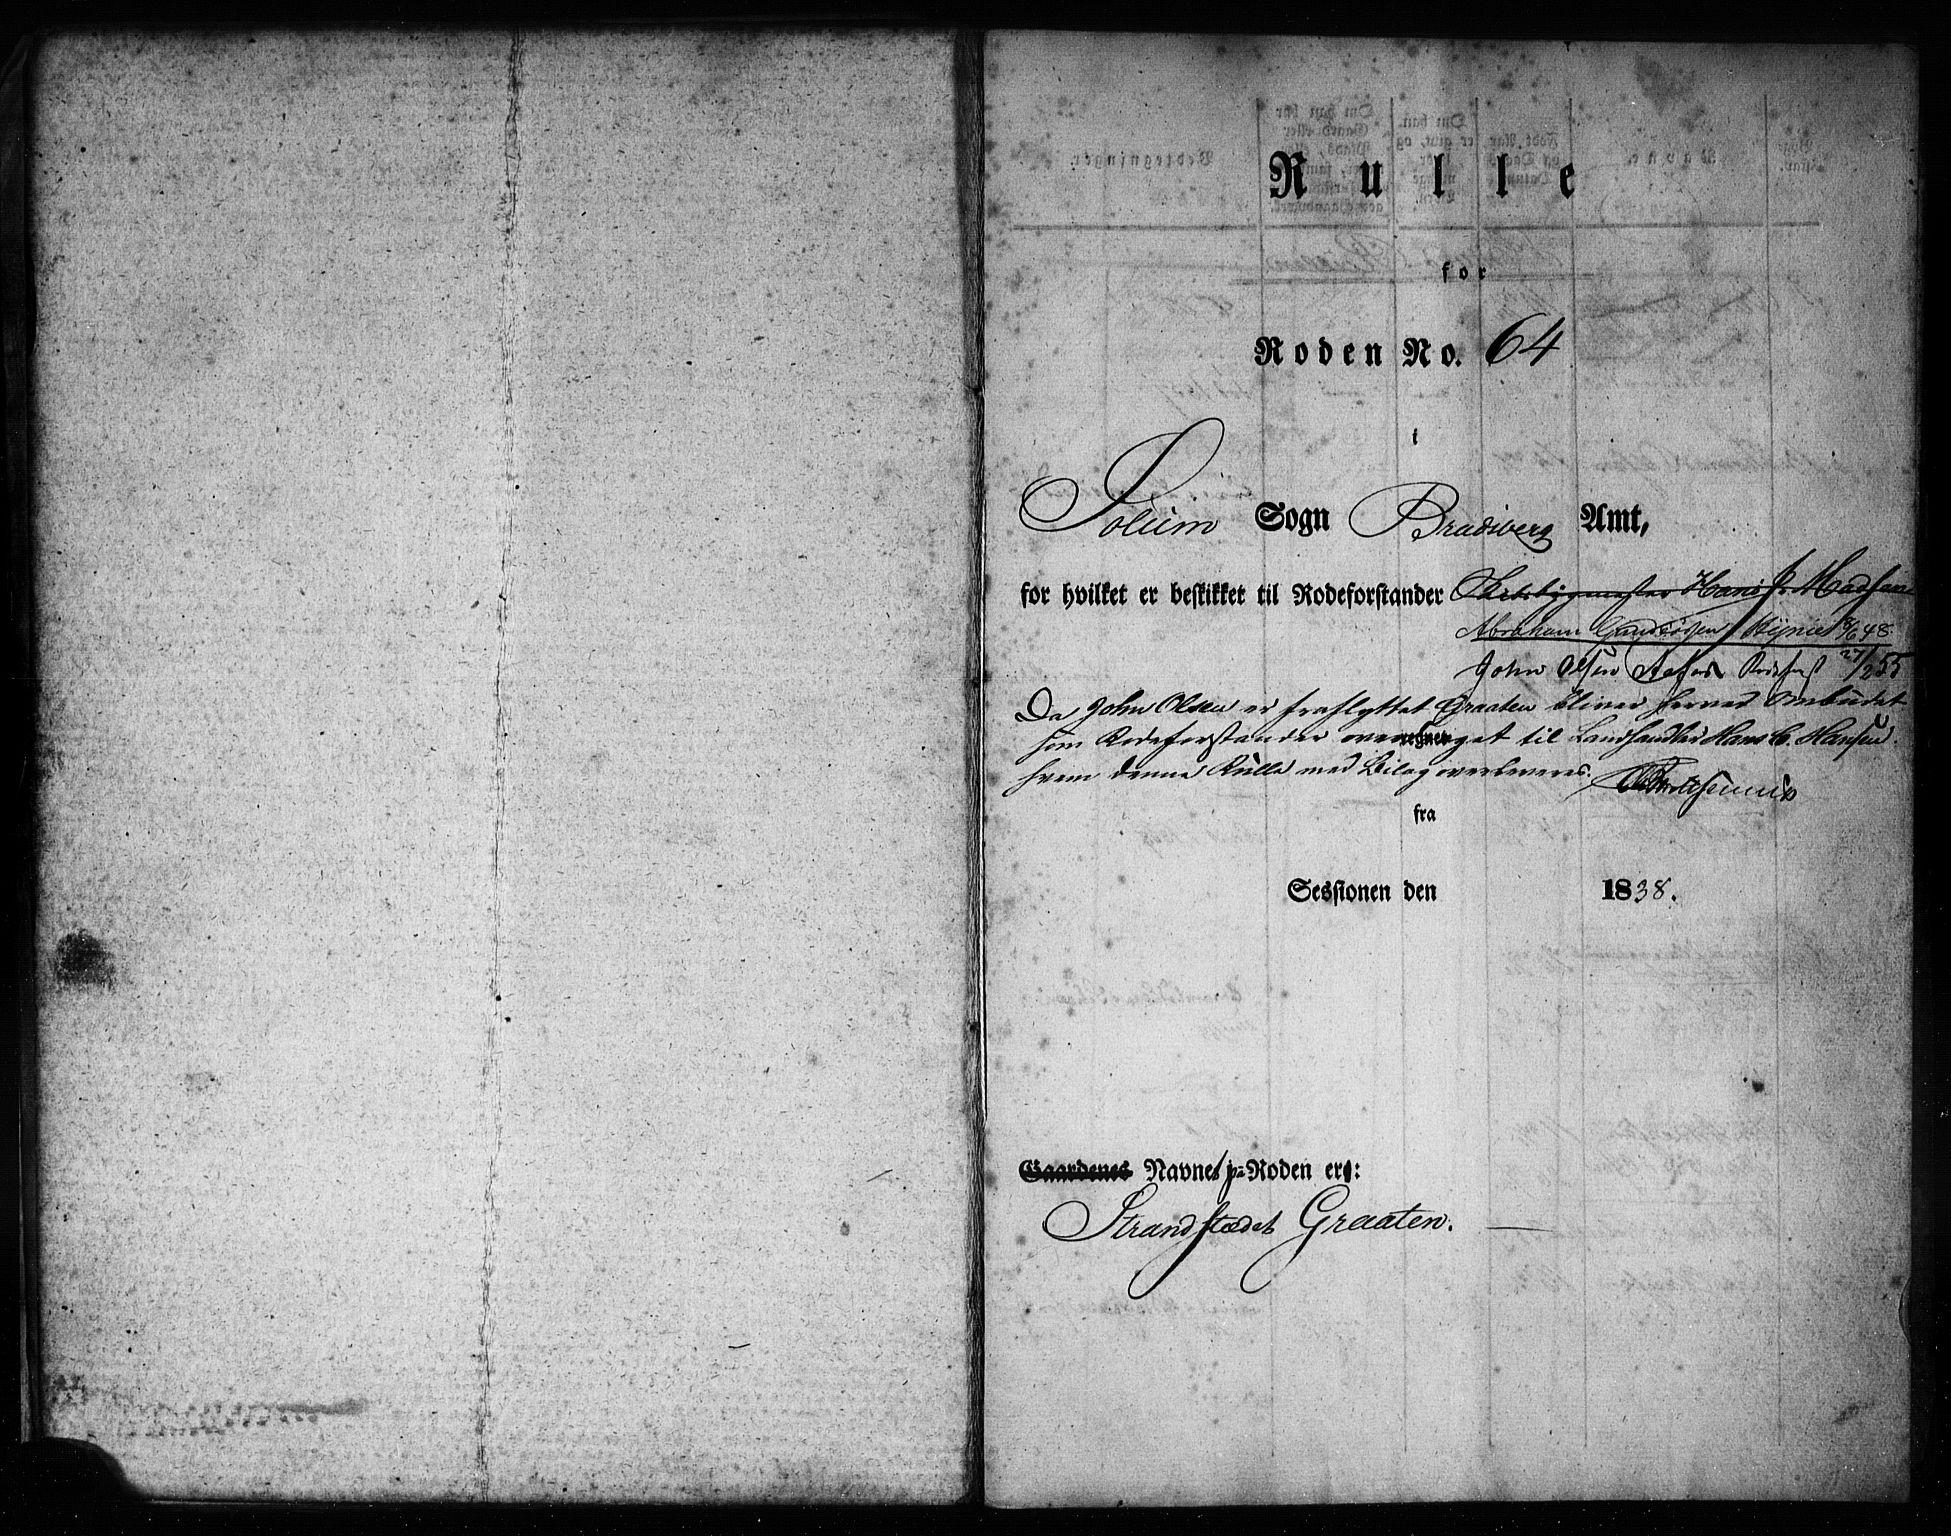 Rulle
for
Roden No. 64
i
Solum Sogn Bradsberg Amt,
for hvilket er beskikket til Rodeforstander Skibsbygmester Hans Madsen
Abraham 8/6 48.
John Olsen 27/2 55
Da John Olsen er fraflyttet Graaten bliver herved Ombudet
som Rodeforstander overdraget til Landhandler Hans C. Hansen.
hvem denne Rulle med Bilag overleveres.
fra
Sessionen den 1838.
Gaardenes Navne paa Roden er:
Strandstædet Graaten.